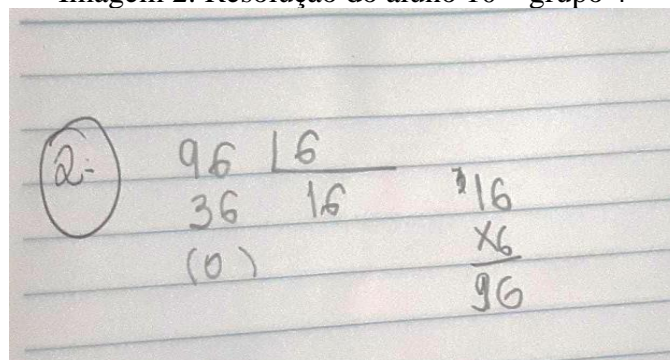 Imagem 2: Resolução do aluno 10 – grupo 4
2-
96 6
36 16
(0)
3 16
x6
96